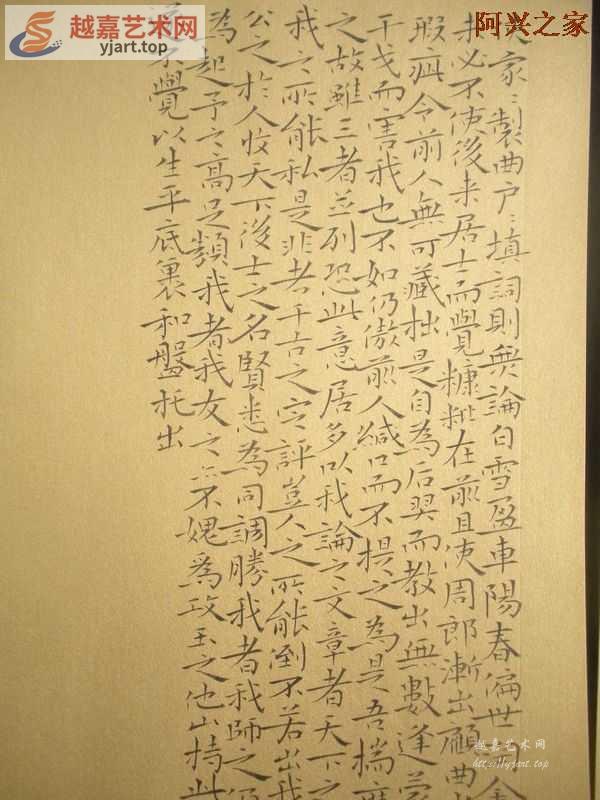 越嘉艺术网
yjart.top
阿兴之家
家〻製曲户〻填詞則無論白雪盈車陽春徧世
未必不使後来居士而覺糠粃在前且使周郎漸出顧曲
瑕疵令前人無可藏拙是自為后羿而教出無數逢
干戈而害我也不如仍倣前人緘口而不提之為是吾揣
之故雖三者並列恐此意居多以我論之文章者天下之
我之所能私是非者千古之定評豈人之所能倒不若出我
公之於人收天下後士之名賢悉為同調勝我者我師之仍
為起予之高足類我者我友之亦不媿爲攻玉之他山持此
不覺以生平底裏和盤托出
越嘉艺术网
http://yjart.top